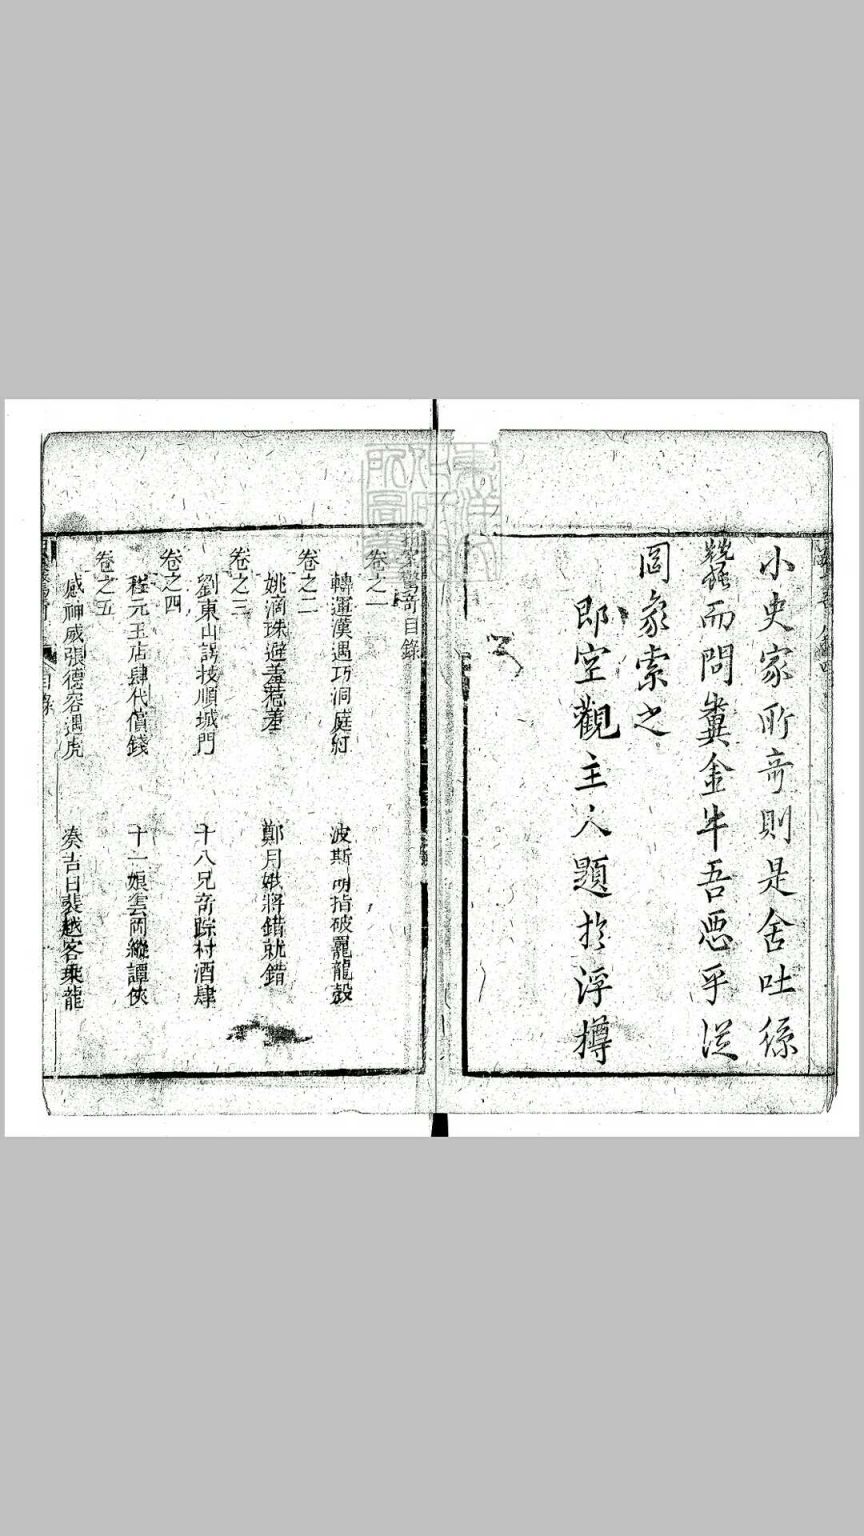 小史家所奇則是舍吐絲
蠶而問糞金牛吾惡乎從
罔象索之
即空觀主人題於浮樽
拍案驚奇目錄
卷之一
轉運漢遇巧洞庭紅 波斯胡指破鼉龍殼
卷之二
姚滴珠避羞惹羞 鄭月娥將錯就錯
卷之三
劉東山誇技順城門 十八兄奇踪村酒肆
卷之四
程元玉店肆代償錢 十一娘雲岡縱譚俠
卷之五
感神威張德容遇虎 湊吉日裴越客乘龍